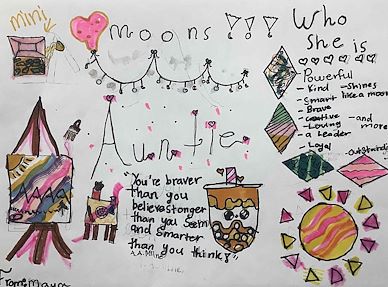 mimi
moons ! ! !
Who
She is
Powerful
- Kind - Shines
- Smart like a moon
- Brave
- creative - and
- Loving more
- a Leader
- Loyal - Outstanding
Auntie
"You're braver
than you
believe stonger
than you seem
and smarter
than you think"
A.A. Milne